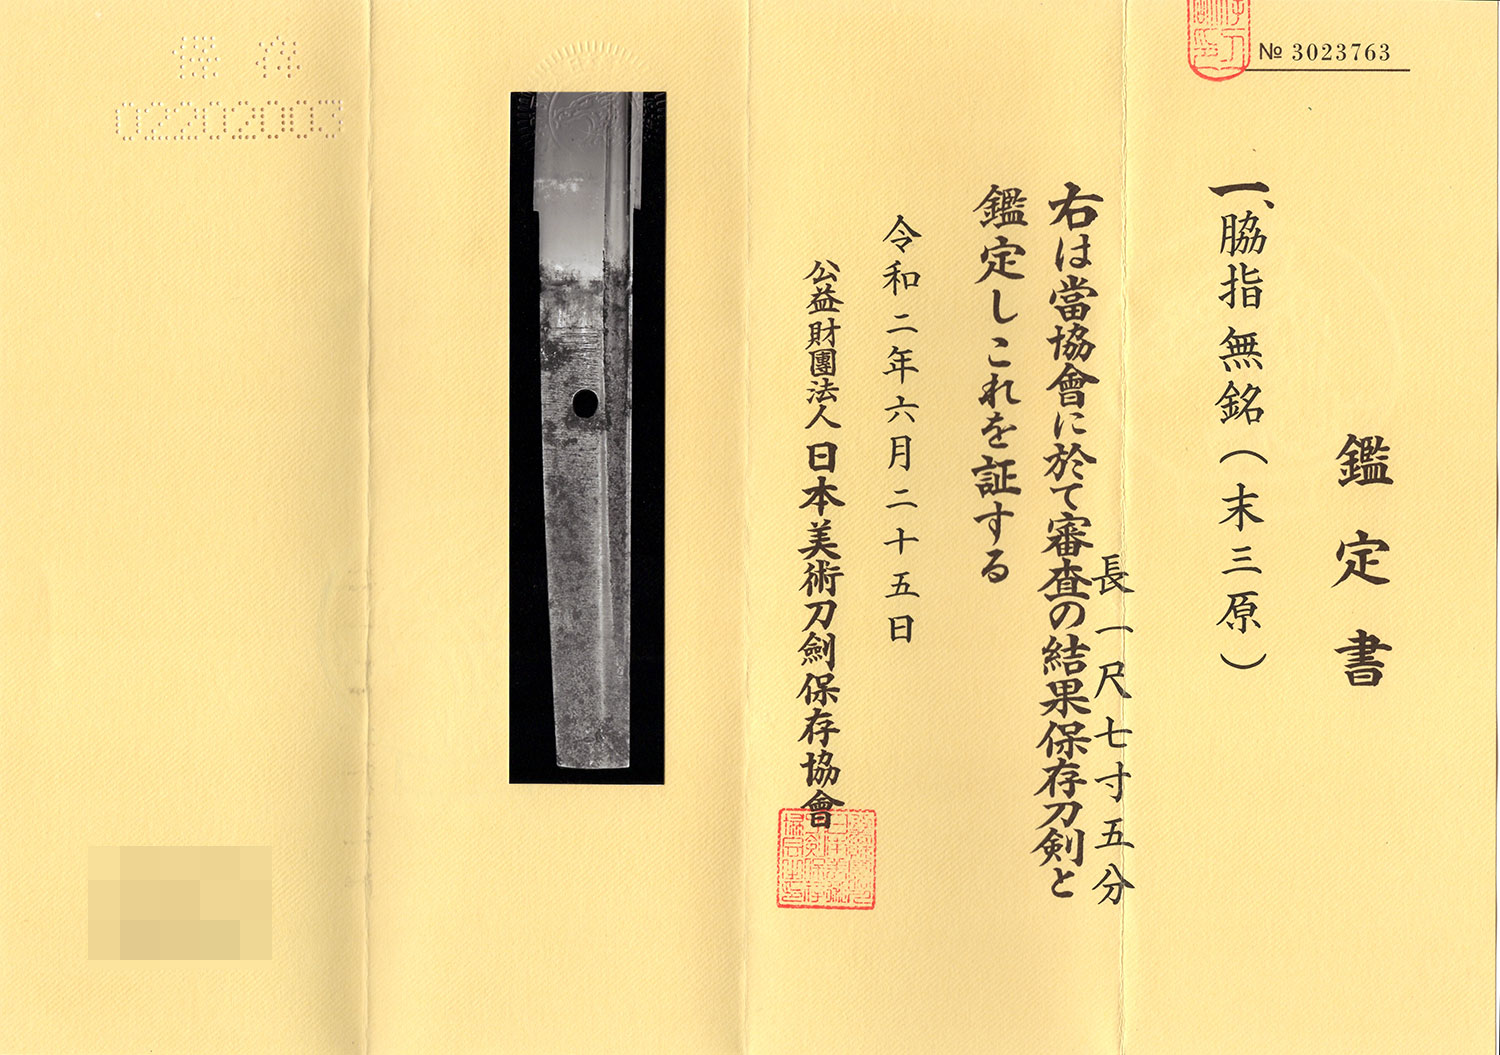 № 3023763
鑑定書
一、脇指無銘(末三原)
長一尺七寸五分
右は當協會に於て審査の結果保存刀剣と
鑑定しこれを証する
令和二年六月二十五日
公益財團法人日本美術刀劍保存協會
保存
02202003